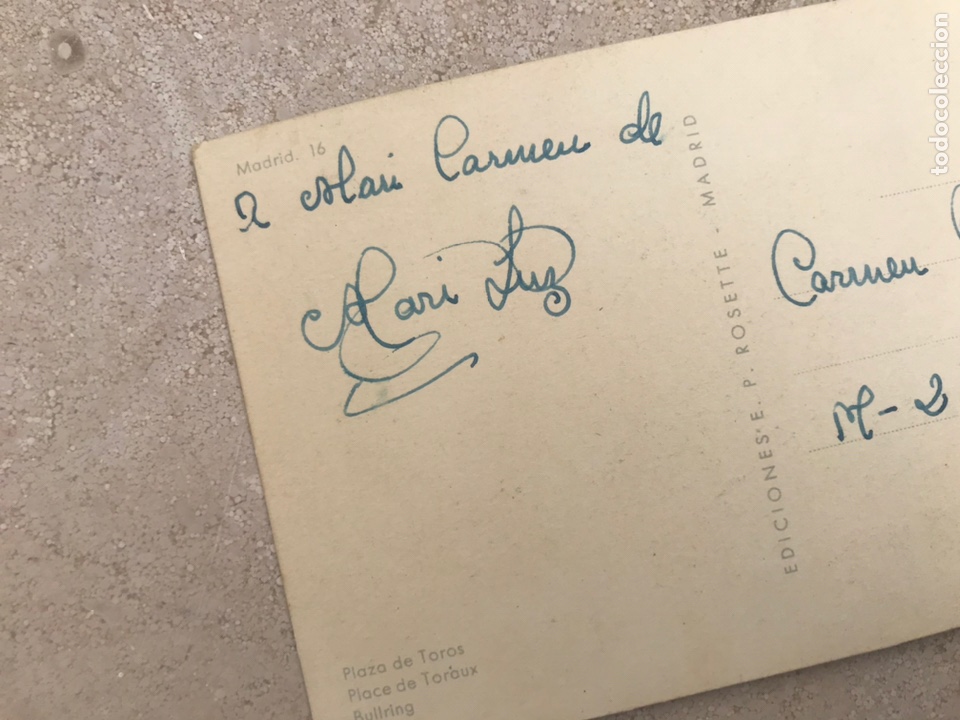 Madrid. 16
a Mari Carmen de
Mari Luz
EDICIONES E. P. ROSETTE - MADRID
Carmen
M-2
Plaza de Toros
Place de Toraux
Bullring
todocoleccion